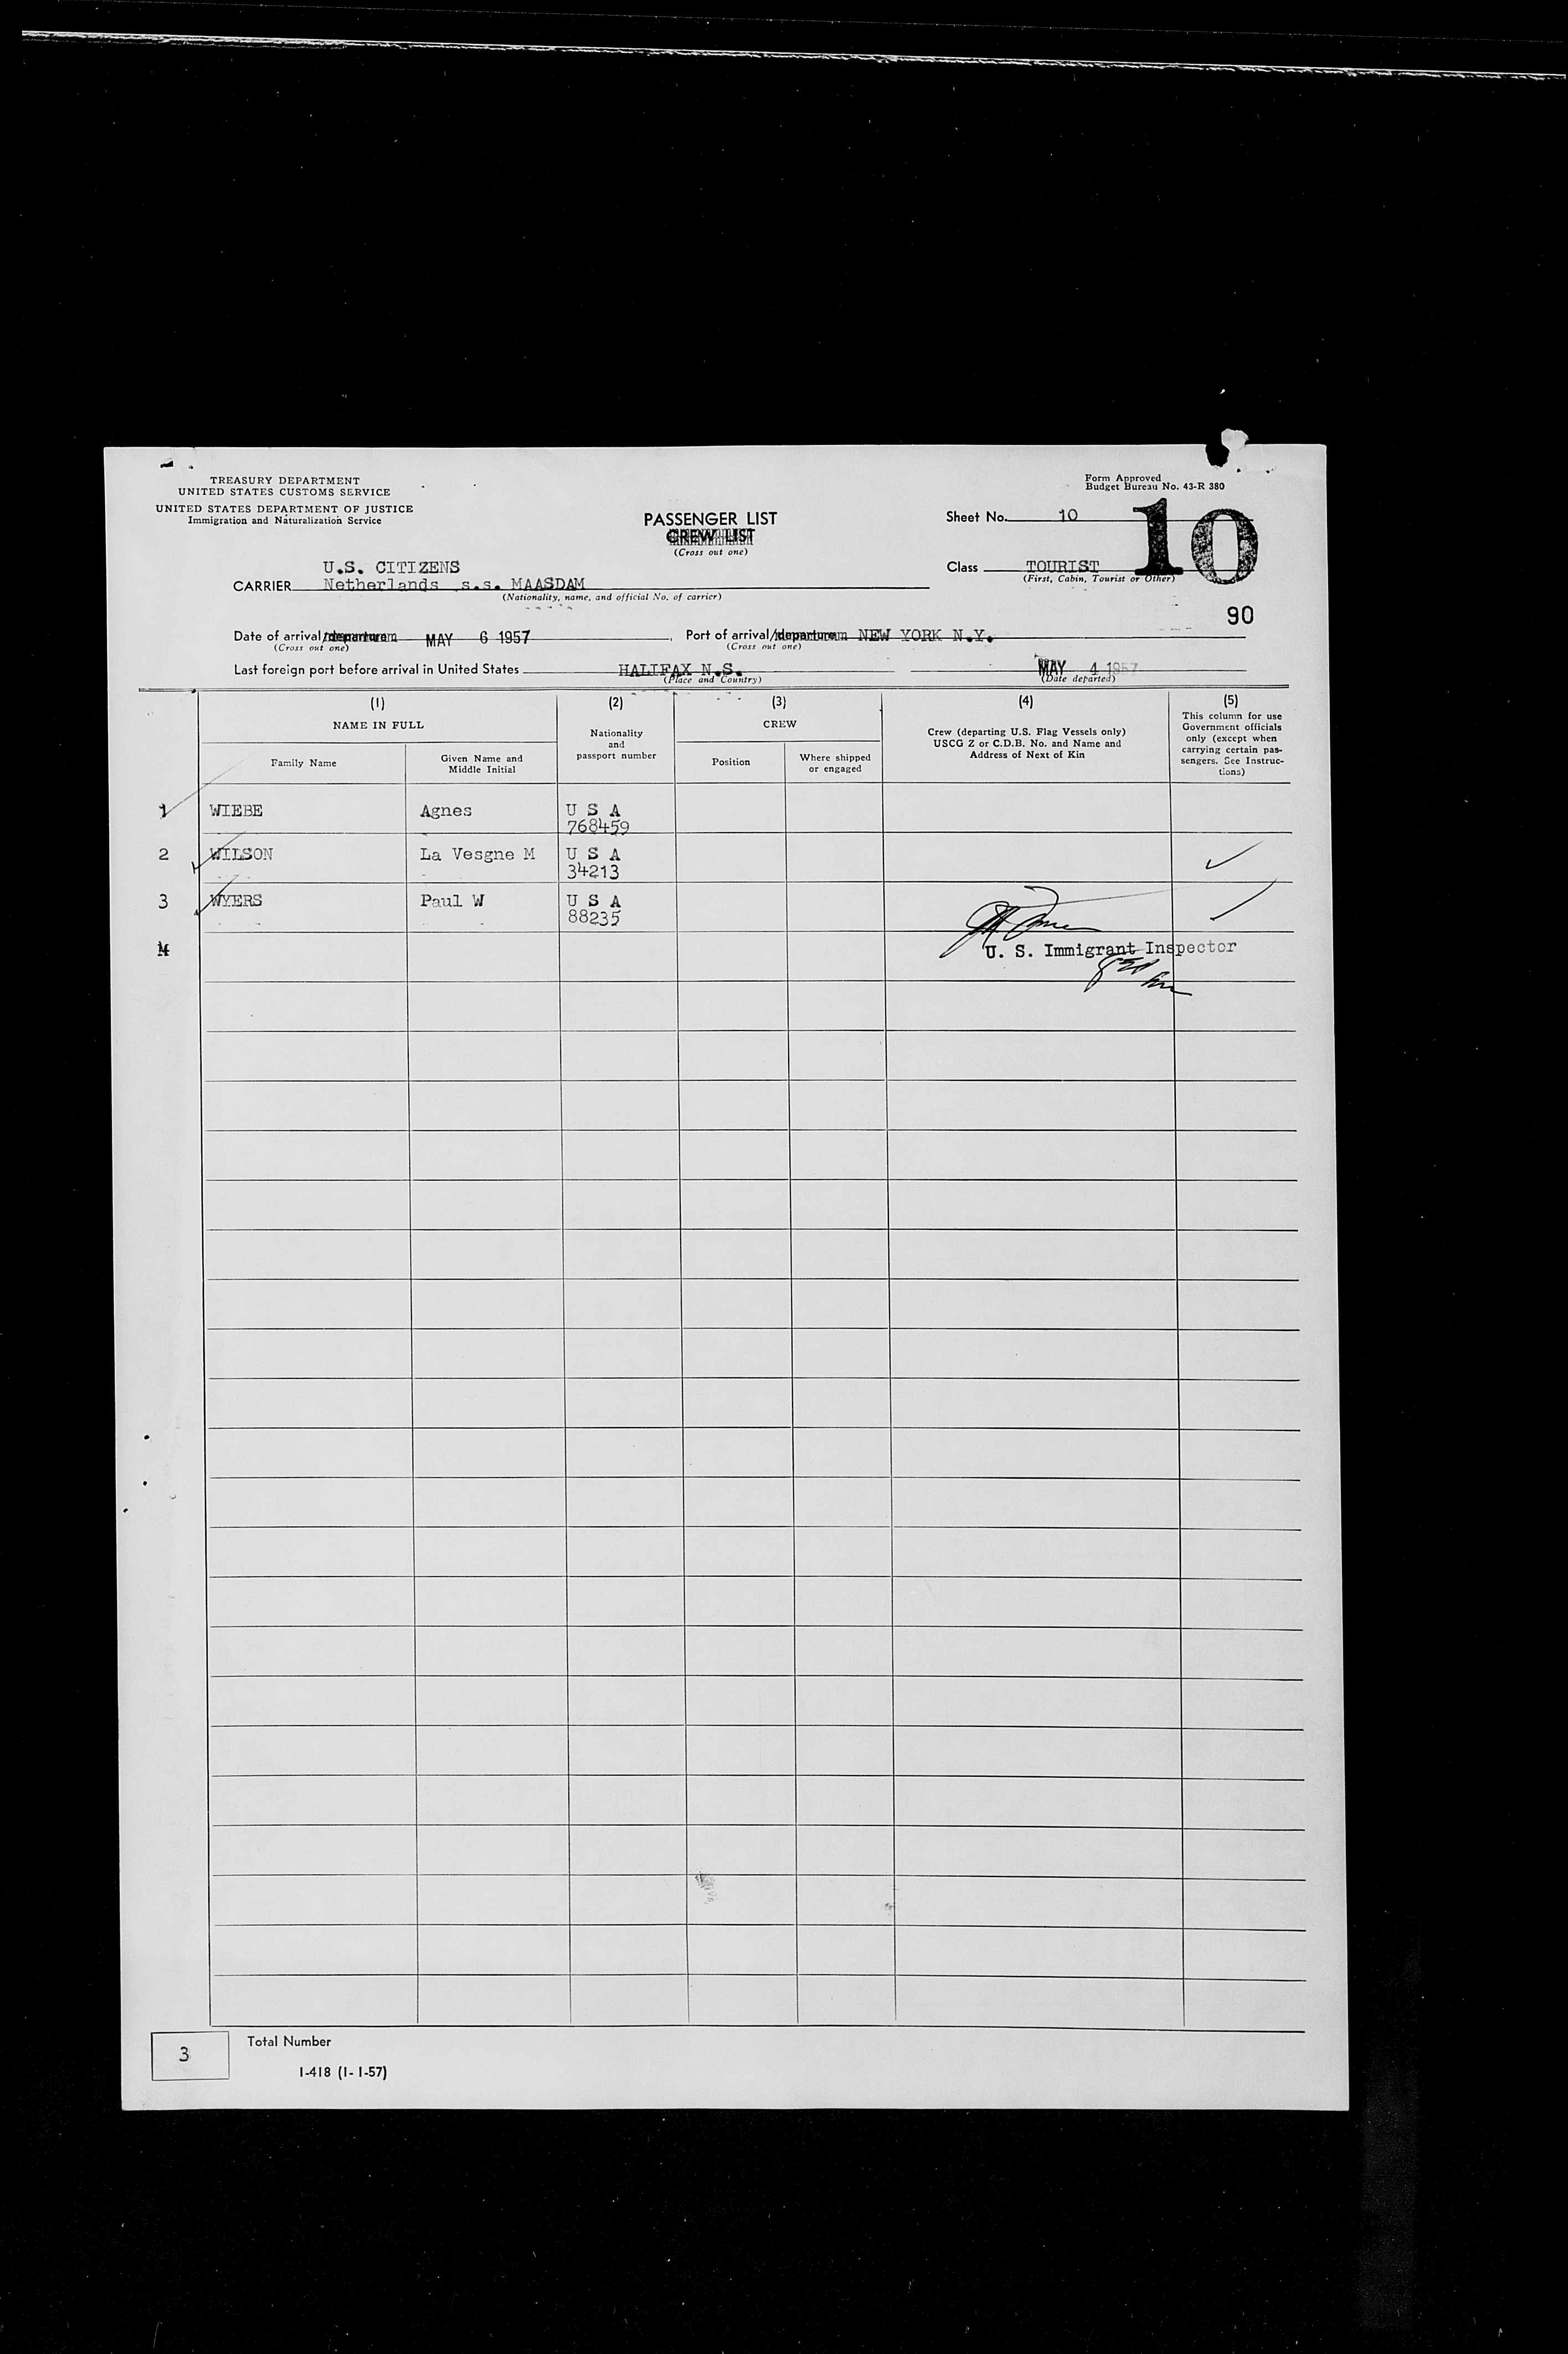 TREASURY DEPARTMENT
UNITED STATES CUSTOMS SERVICE
UNITED STATES DEPARTMENT OF JUSTICE
Immigration and Naturalization Service
Form Approved
Budget Bureau No. 43-R 380
PASSENGER LIST
CREW LIST
(Cross out one)
Sheet No. 10
10
U.S. CITIZENS
CARRIER Netherlands s.s. MAASDAM
(Nationality, name, and official No. of carrier)
Class TOURIST
(First, Cabin, Tourist or Other)
90
Date of arrival/departure MAY 6 1957, Port of arrival/departure NEW YORK N.Y.
(Cross out one) (Cross out one)
Last foreign port before arrival in United States HALIFAX N.S. MAY 4 1957
(Place and Country) (Date departed)
(1) (2) (3) (4) (5)
NAME IN FULL
Family Name
Given Name and
Middle Initial
Nationality
and
passport number
CREW
Position
Where shipped
or engaged
Crew (departing U.S. Flag Vessels only)
USCG Z or C.D.B. No. and Name and
Address of Next of Kin
This column for use
Government officials
only (except when
carrying certain pas-
sengers. See Instruc-
tions)
1 WIEBE Agnes U S A
768459
2 WILSON La Vesgne M U S A
34213
3 WYERS Paul W U S A
88235
4
U. S. Immigrant Inspector
3 Total Number
I-418 (1-1-57)